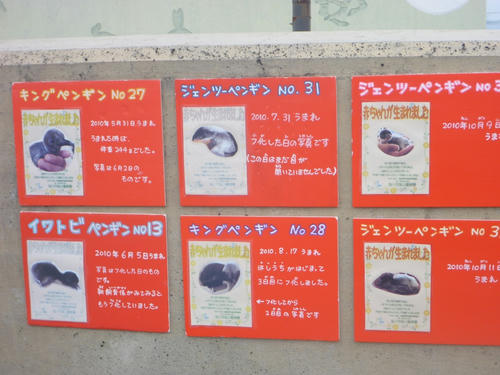 キングペンギン No 27
赤ちゃんが生まれました
2010年5月31日うまれ
うまれた時は、
体重244gでした。
写真は6月2日の
ものです。
ジェンツーペンギン NO. 31
赤ちゃんが生まれました
2010. 7. 31 うまれ
フ化した日の写真です
(この日はまだ目が
開いていませんでした)
ジェンツーペンギン No 3
赤ちゃんが生まれました
2010年10月9日
うま
イワトビペンギン No13
赤ちゃんが生まれました
2010年6月5日うまれ
写真はフ化した日のもの
です。
飼育係がみてみると
もうフ化していました。
キングペンギン No 28
赤ちゃんが生まれました
2010. 8. 17 うまれ
はしうちがはじまって
3日目にフ化しました。
←フ化してから
2日目の写真です
ジェンツーペンギン No. 3
赤ちゃんが生まれました
2010年10月11日
うまれ